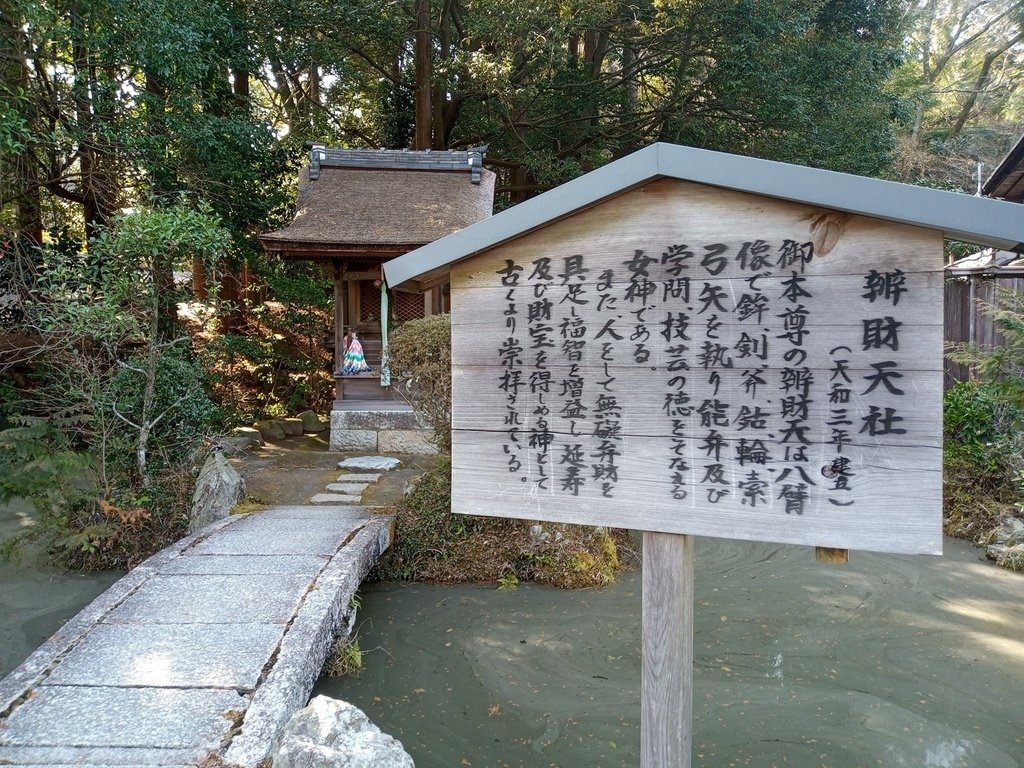 辨財天社
(天和三年建立)
御本尊の辨財天は八臂
像で鉾、剣、斧、鈷、輪、索
弓矢を執り能弁及び
学問、技芸の徳をそなえる
女神である。
また、人をして無礙弁財を
具足し福智を増益し延寿
及び財宝を得しめる神として
古くより崇拝されている。